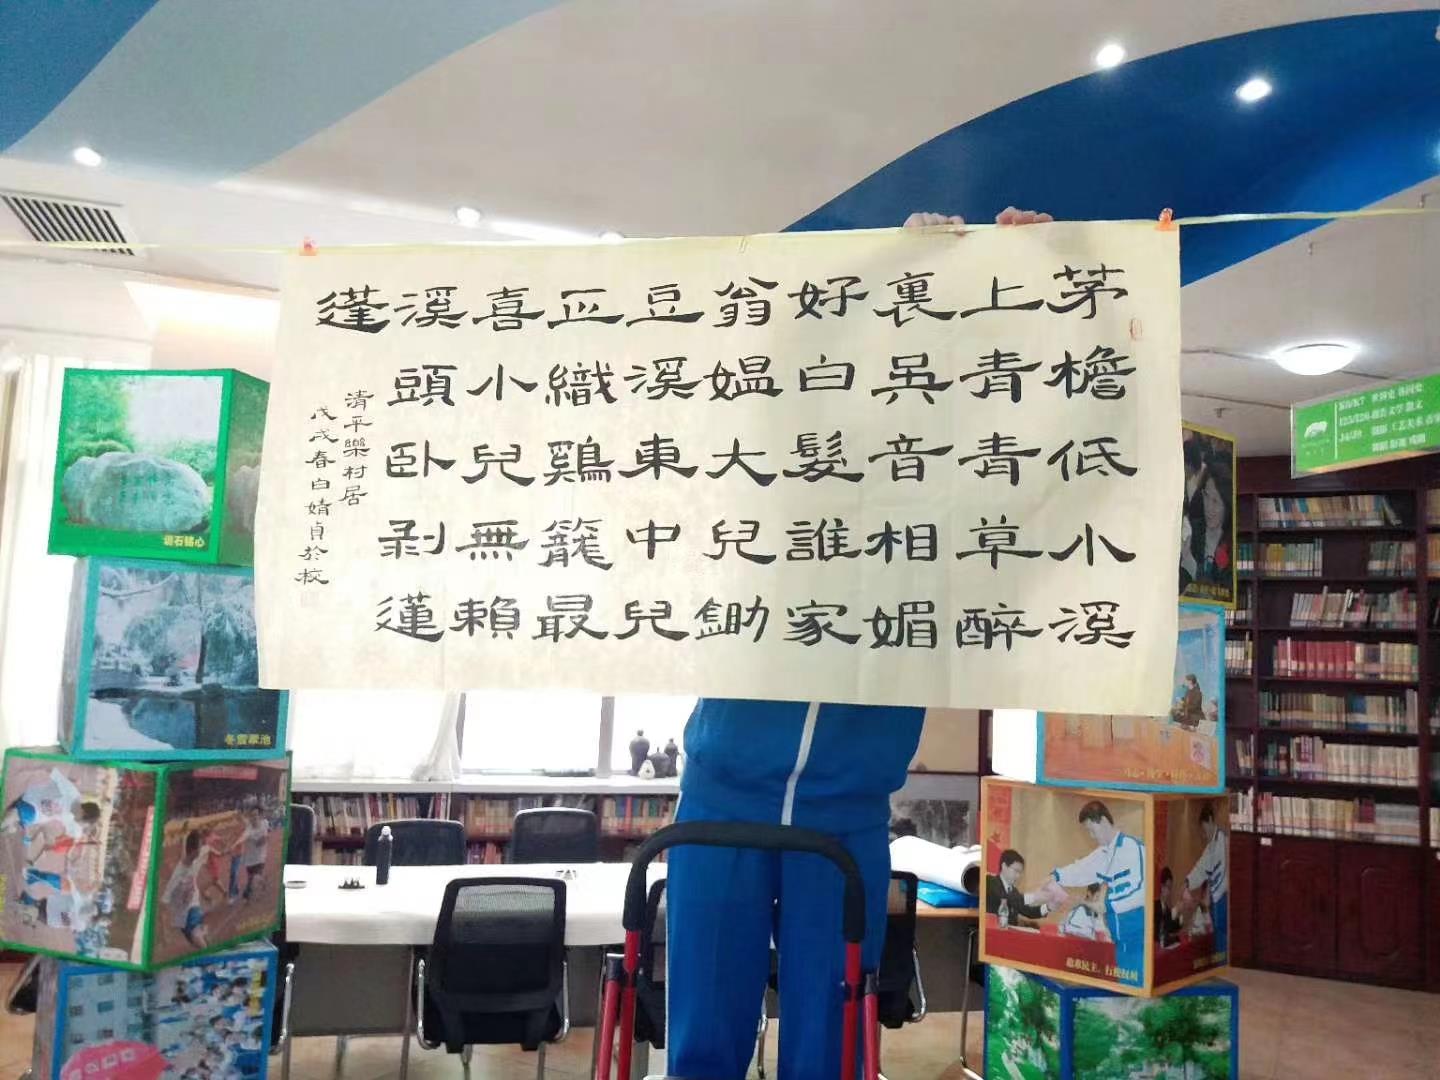 茅檐低小溪
上青青草醉
裏吳音相媚
好白髮誰家
翁媼大兒鋤
豆溪東中兒
正織鷄籠最
喜小兒無賴
溪頭卧剥蓮
蓬
清平樂村居
戊戌春白婧貞於校
冬雪翠池